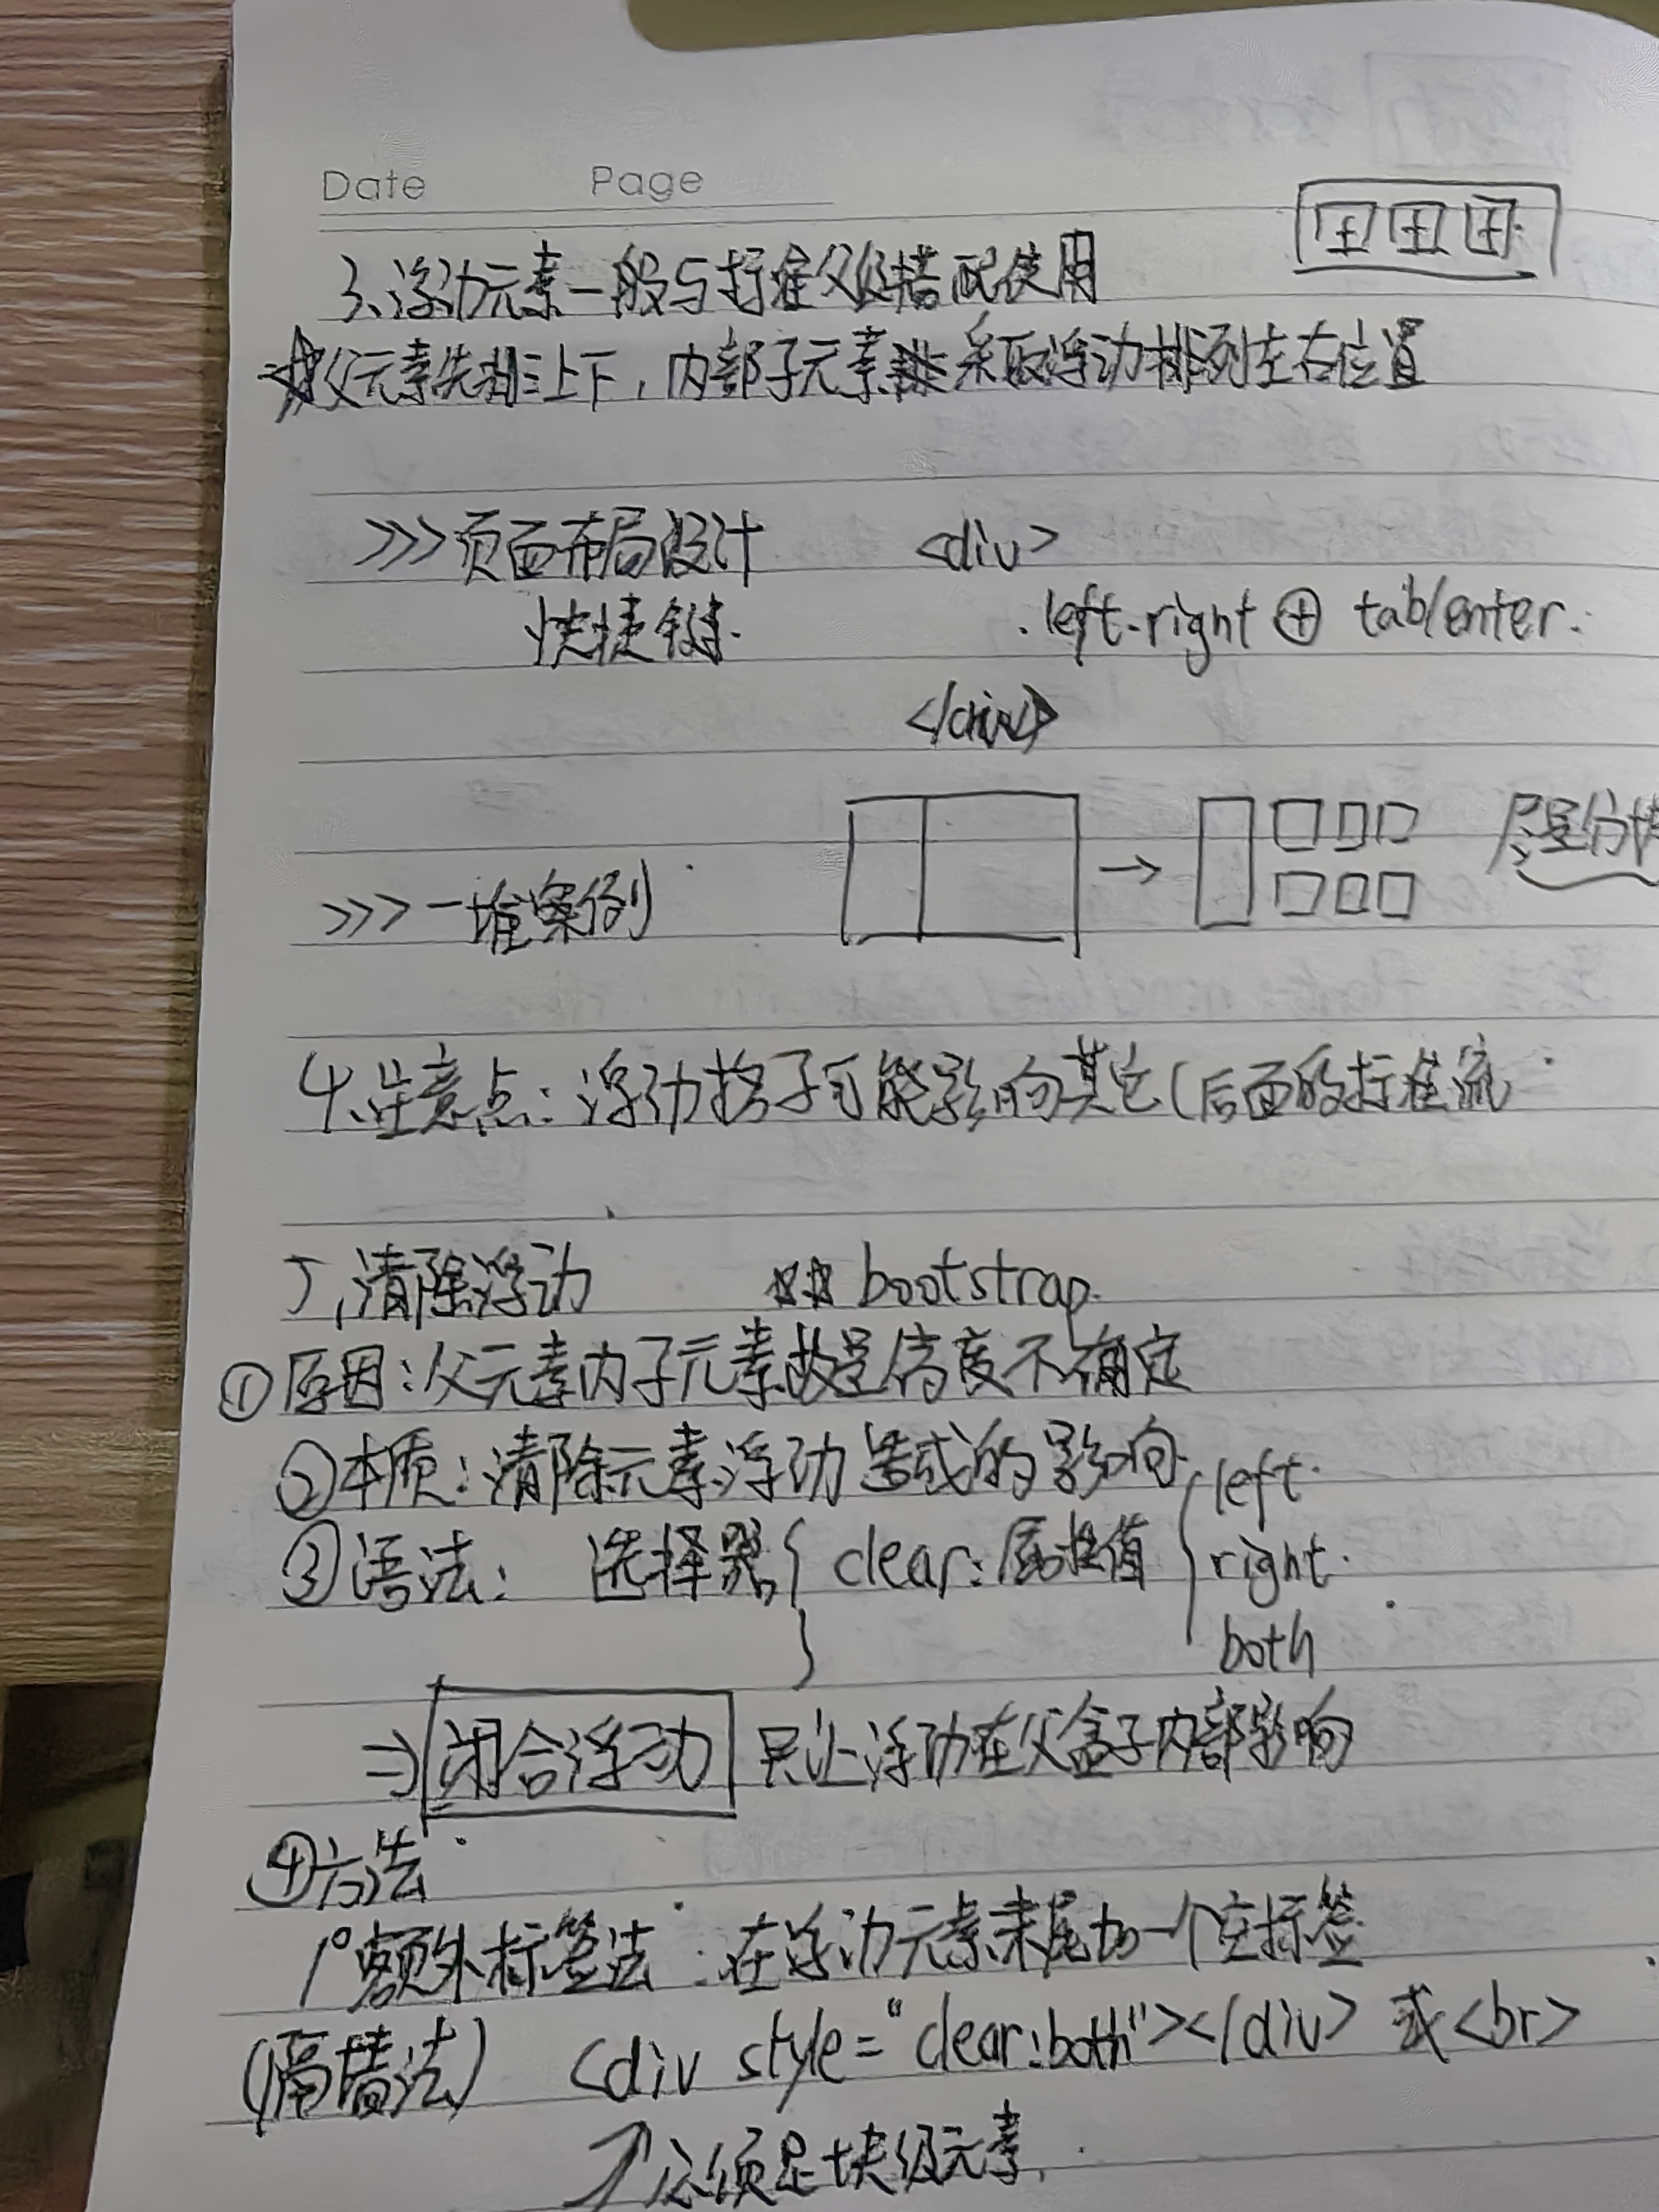 Date Page
3、浮动元素一般与标准父级搭配使用
☆父元素先排上下，内部子元素采取浮动排列左右位置
>>>页面布局设计 <div>
快捷键. .left-right ⊕ tab/enter.
</div>
>>>一堆案例 → 尽量分
4、注意点：浮动挌子可能影响其它(后面的标准流
5、清除浮动 ☆☆ bootstrap.
①原因：父元素内子元素数量高度不确定
②本质：清除元素浮动造成的影响.
③语法： 选择器{ clear:属性值 { left.
right.
} both
⇒ 闭合浮动 只让浮动在父盒子内部影响
④方法
1°额外标签法：在浮动元素末尾加一个空标签
(隔墙法) <div style="clear:both"></div> 或<br>
↗必须是块级元素.